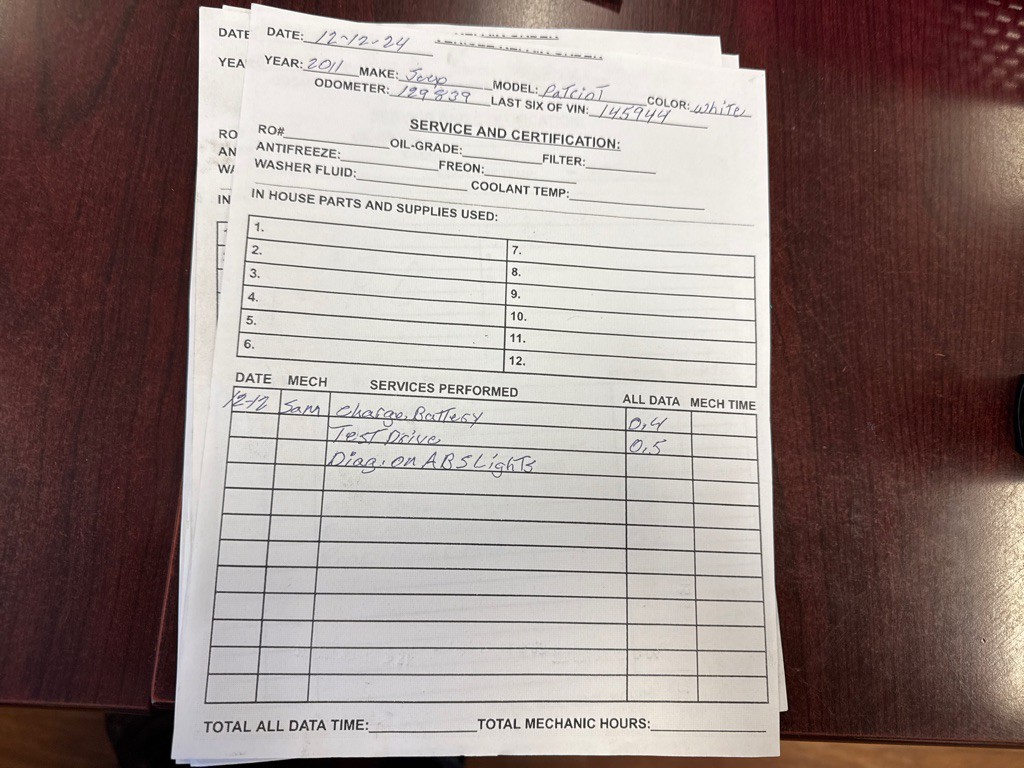 DATE
YEA
RO
AN
WA
IN
DATE: 12-12-24
YEAR: 2011 MAKE: Jeep MODEL: PaTrioT COLOR: whiTe
ODOMETER: 129839 LAST SIX OF VIN: 145944
SERVICE AND CERTIFICATION:
RO# OIL-GRADE: FILTER:
ANTIFREEZE: FREON:
WASHER FLUID: COOLANT TEMP:
IN HOUSE PARTS AND SUPPLIES USED:
1. 7.
2. 8.
3. 9.
4. 10.
5. 11.
6. 12.
DATE MECH SERVICES PERFORMED ALL DATA MECH TIME
12-12 Sam Charge, BaTTery 0,4
TesT Drive 0.5
Diag. on ABS LighTs
TOTAL ALL DATA TIME: TOTAL MECHANIC HOURS: